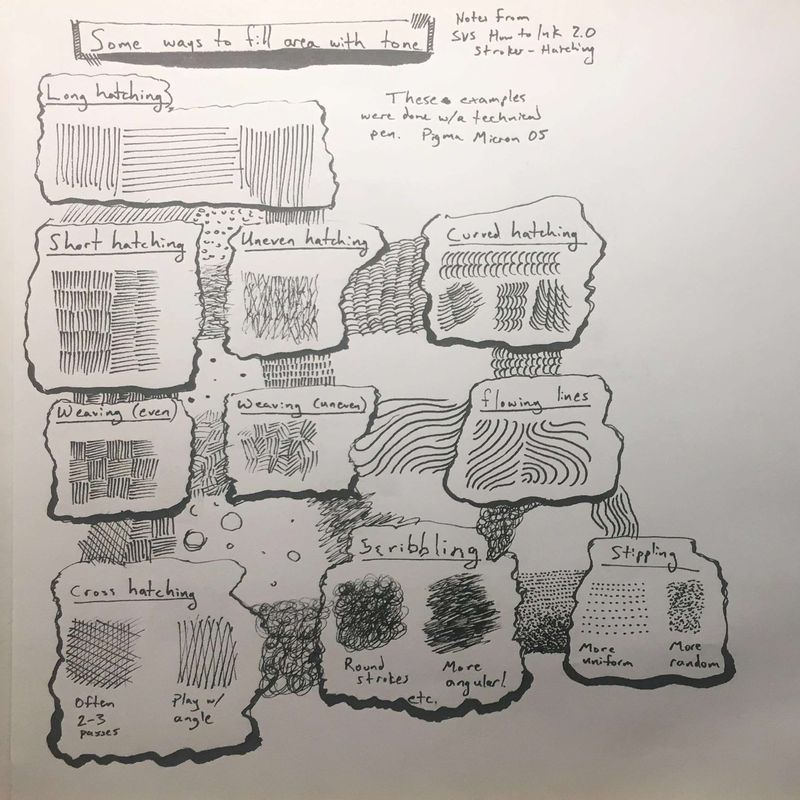 Some ways to fill area with tone
Notes from
SVS How to Ink 2.0
Strokes - Hatching
These examples
were done w/a technical
pen. Pigma Micron 05
Long hatching
Short hatching
Uneven hatching
Curved hatching
Weaving (even)
Weaving (uneven)
flowing lines
Cross hatching
Often
2-3
passes
Play w/
angle
Scribbling
Round
strokes
More
angular!
etc.
Stippling
More
uniform
More
random